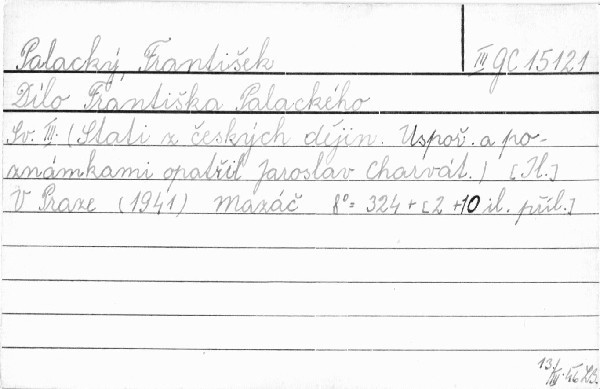 Palacký, František III GC 15121
Dílo Františka Palackého
Sv. III. (Stati z českých dějin. Uspoř. a po-
známkami opatřil Jaroslav Charvát.) [Il.]
V Praze (1941) Mazáč 8° = 324 + [2 + 10 il. příl.]
13/III.46